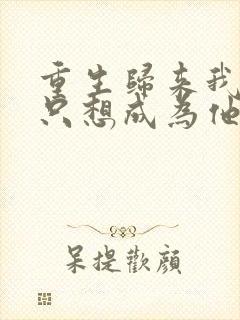 重生歸來我
只想成為他
呆提歡顔